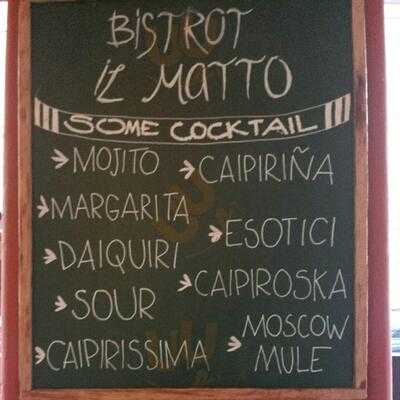 BISTROT
IL MATTO
SOME COCKTAIL
MOJITO
CAIPIRIÑA
MARGARITA
ESOTICI
DAIQUIRI
CAIPIROSKA
SOUR
MOSCOW
MULE
CAIPIRISSIMA